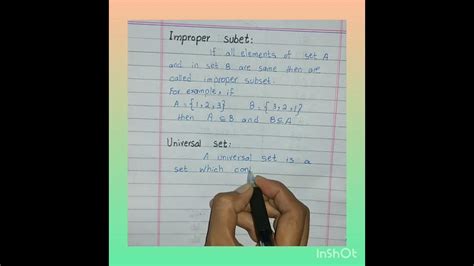 Improper subet:
If all elements of set A
and in set B are same then are
called improper subset.
For example, if
A = {1, 2, 3} B = {3, 2, 1}
then A ⊆ B and B ⊆ A.
Universal set:
A universal set is a
set which con
InShOt